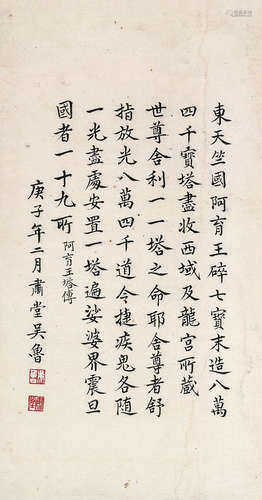 東天竺國阿育王碎七寶末造八萬
四千寶塔盡收西域及龍宮所藏
世尊舍利一一塔之命耶舍尊者舒
指放光八萬四千道令捷疾鬼各隨
一光盡處安置一塔遍娑婆界震旦
國者一十九所 阿育王塔傳
庚子年二月肅堂吳魯